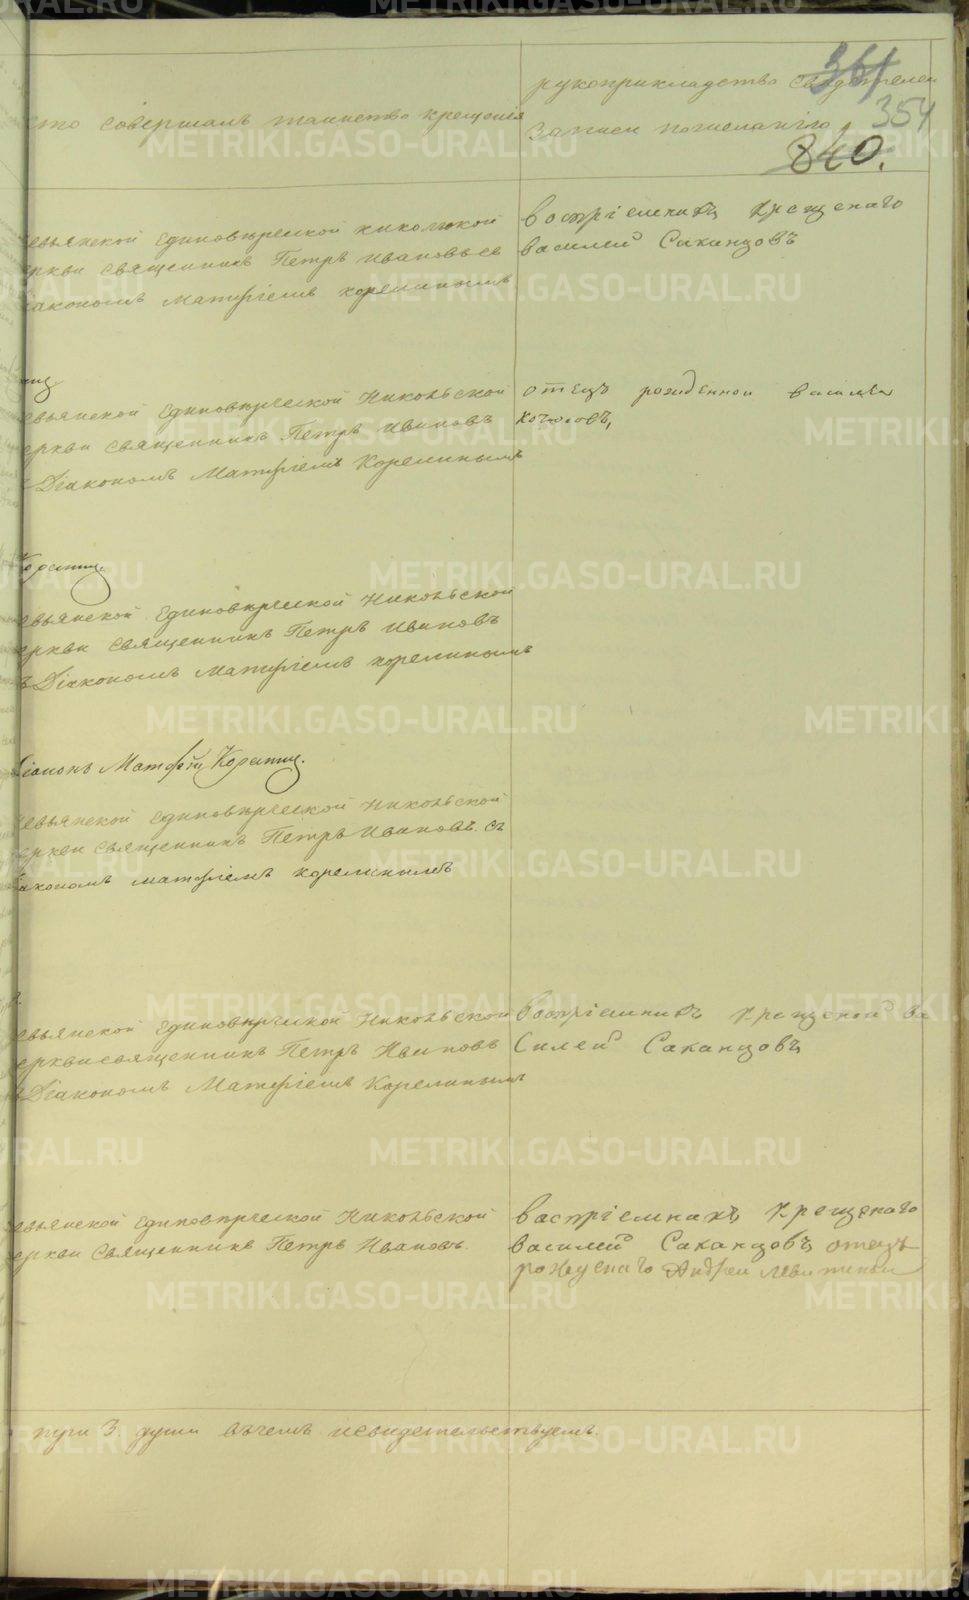 361
354
840.
Кто совершалъ таинство крещенія
рукоприкладство свидетелей
Записи пожеланію
евьянской Единоверческой николской
еркви священникъ Петръ Ивановъ съ
іакономъ Матфіемъ корелинымъ
воспріемникъ крещенаго
василей Саканцовъ
евьянской Единоверческой Никольской
еркви священникъ Петръ Ивановъ
Діакономъ Матфіемъ Корелинымъ
отецъ рожденной василей
евьянской Единоверческой Никольской
еркви священникъ Петръ Ивановъ
съ Діакономъ Матфіемъ корелинымъ
Діаконъ Матфей Корелинъ.
евьянской Единоверческой Никольской
еркви священникъ Петръ Ивановъ съ
іакономъ матфіемъ корелинымъ
евьянской Единоверческой Никольской
еркви священникъ Петръ Ивановъ
Діакономъ Матфіемъ Корелинымъ
воспріемникъ крещеной ва
Силей Саканцовъ
евьянской Единоверческой Никольской
еркви Священникъ Петръ Ивановъ.
васпріемникъ крещенаго
василей Саканцовъ отецъ
рожденаго Андрей Левиткинъ
3. души въчемъ исвидетельствуемъ.
METRIKI.GASO-URAL.RU